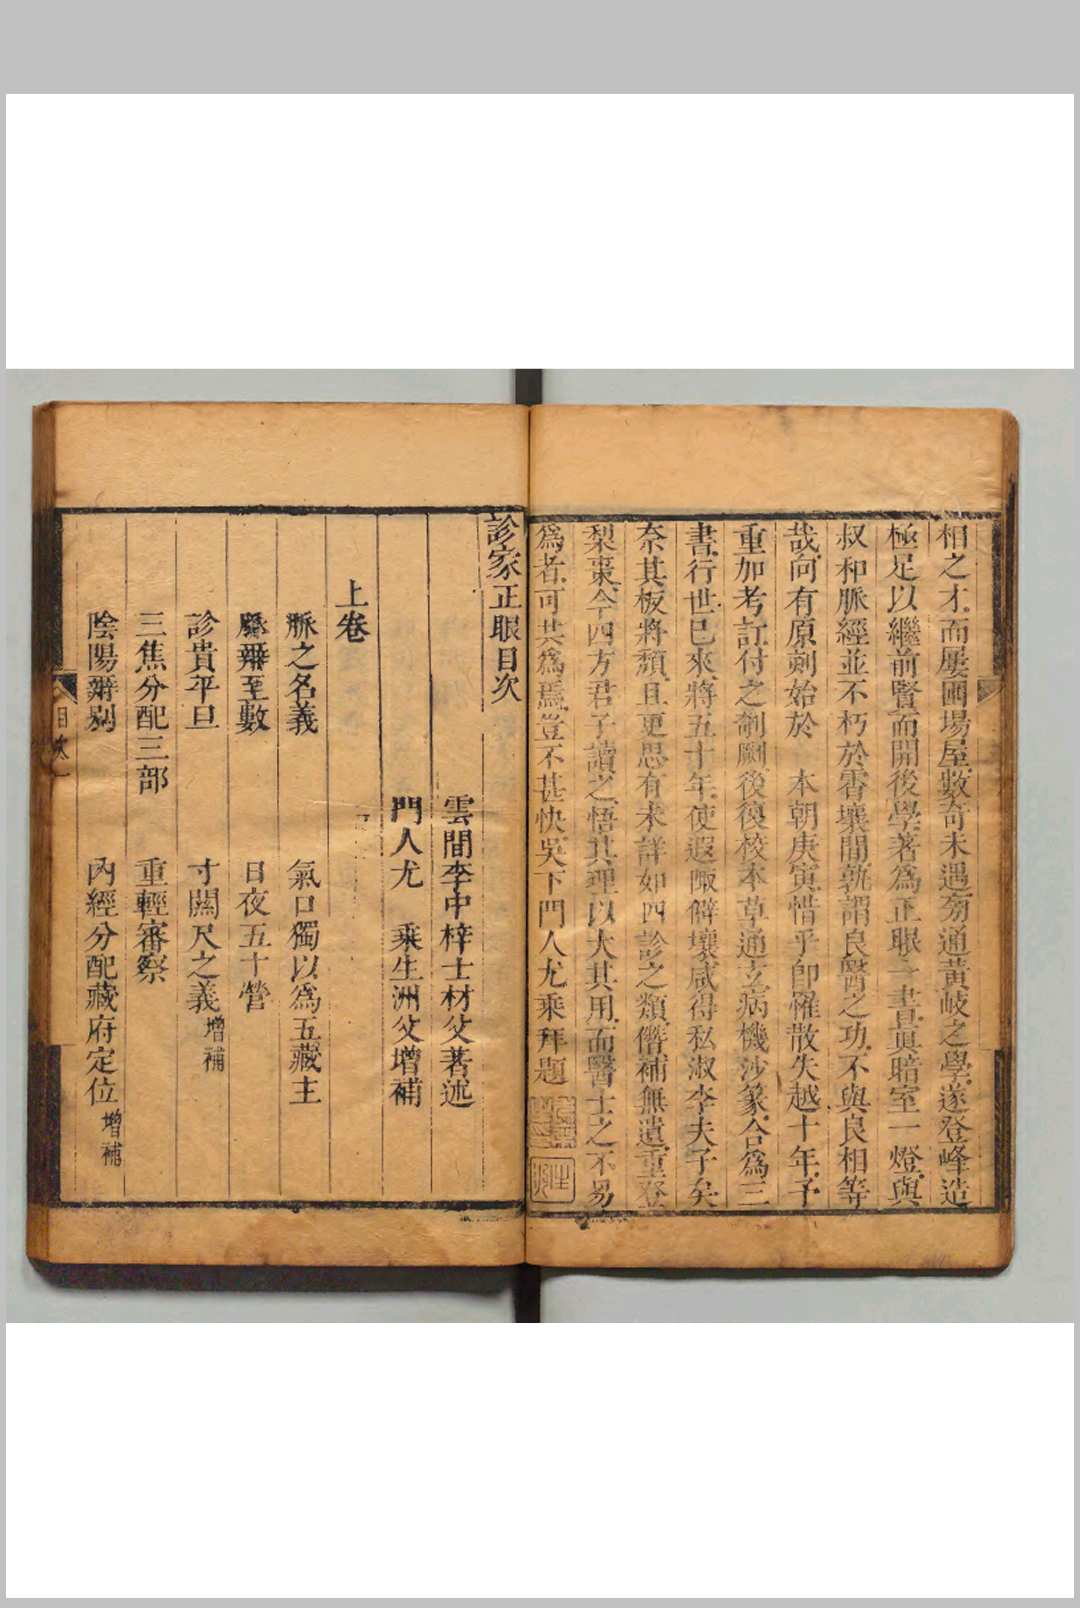 相之才而屢困場屋數奇未遇旁通黃岐之學遂登峰造
極足以繼前賢而開後學著為正眼一書真暗室一燈與
叔和脈經並不朽於霄壤間孰謂良醫之功不與良相等
哉向有原刻始於 本朝庚寅惜乎即罹散失越十年予
重加考訂付之剞劂後復校本草通玄病機沙篆合為三
書行世已來將五十年使遐陬僻壤咸得私淑李夫子矣
奈其板將頹且更思有未詳如四診之類僭補無遺重登
梨棗令四方君子讀之悟其理以大其用而醫士之不易
為者可共為焉豈不甚快吳下門人尤乘拜題
診家正眼目次
雲間李中梓士材父著述
門人尤 乘生洲父增補
上卷
脈之名義 氣口獨以為五藏主
脈辨至數 日夜五十營
診貴平旦 寸關尺之義增補
三焦分配三部 重輕審察
陰陽辨別 內經分配藏府定位增補
目次 一